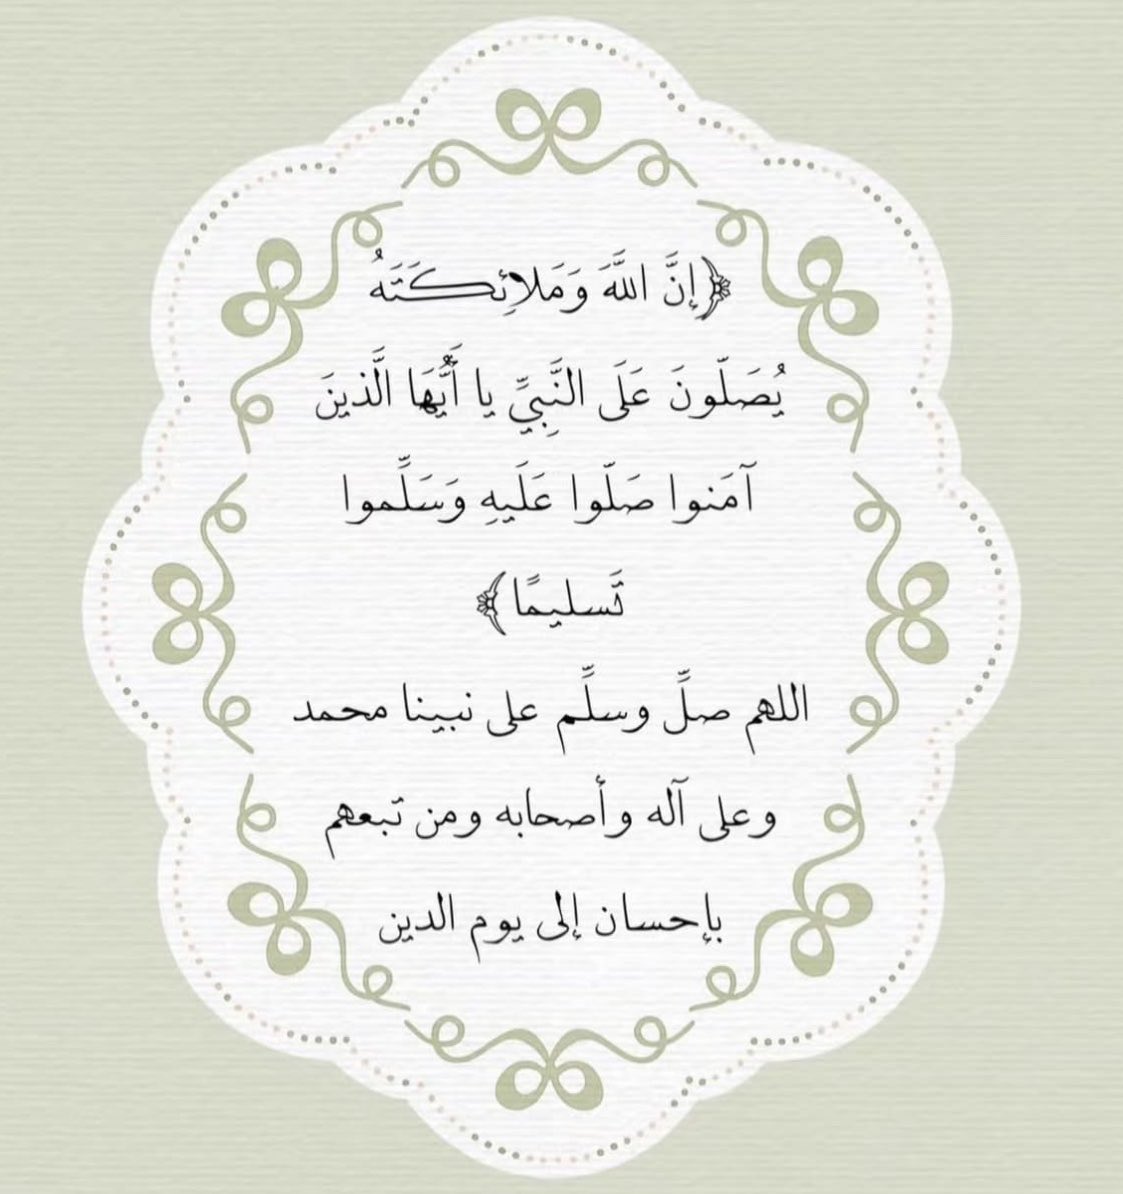 ﴿إِنَّ اللَّهَ وَمَلائِكَتَهُ
يُصَلّونَ عَلَى النَّبِيِّ يا أَيُّهَا الَّذينَ
آمَنوا صَلّوا عَلَيهِ وَسَلِّموا
تَسليمًا﴾
اللهم صلِّ وسلِّم على نبينا محمد
وعلى آله وأصحابه ومن تبعهم
بإحسان إلى يوم الدين